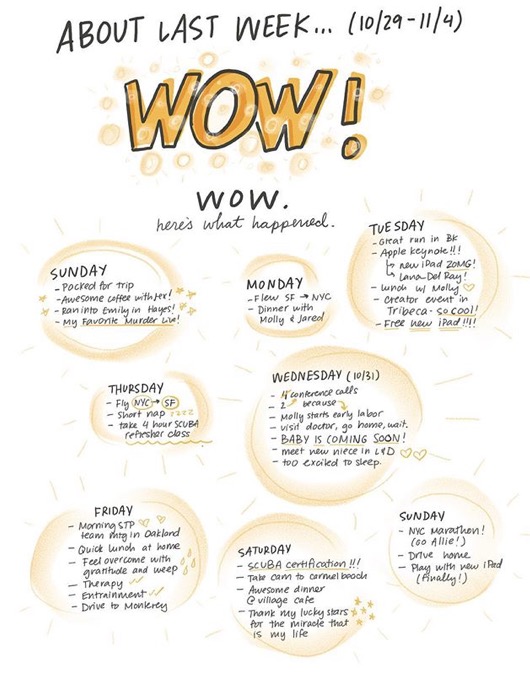 ABOUT LAST WEEK... (10/29-11/4)
WOW!
WOW.
here's what happened.
SUNDAY
- Packed for trip
- Awesome coffee with Jex!
- Ran into Emily in Hayes!
- My Favorite Murder Live!
MONDAY
- Flew SF → NYC
- Dinner with
Molly & Jared
TUESDAY
- Great run in BK
- Apple keynote!!!
↳ new iPad ZOMG!
↳ Lana Del Ray!
- lunch w/ Molly ♡
- creator event in
Tribeca - so cool!
- Free new iPad!!!!
THURSDAY
- Fly NYC → SF
- Short nap zzzz
- take 4 hour SCUBA
refresher class
WEDNESDAY (10/31)
- 4 conference calls
- 2 because
- Molly starts early labor
- visit doctor, go home, wait.
- BABY IS COMING SOON!
- meet new niece in L&D ♡♡
- too excited to sleep.
FRIDAY
- Morning STP ♡ ♡
team mtg in Oakland
- Quick lunch at home
- Feel overcome with
gratitude and weep
- Therapy ✓
- Entrainment ✓✓
- Drive to Monterey
SATURDAY
- SCUBA certification!!!
- Take Cam to Carmel beach
- Awesome dinner
@ village cafe
- Thank my lucky stars
for the miracle that
is my life
SUNDAY
- NYC Marathon!
(Go Allie!)
- Drive home
- Play with new iPad
(Finally!)